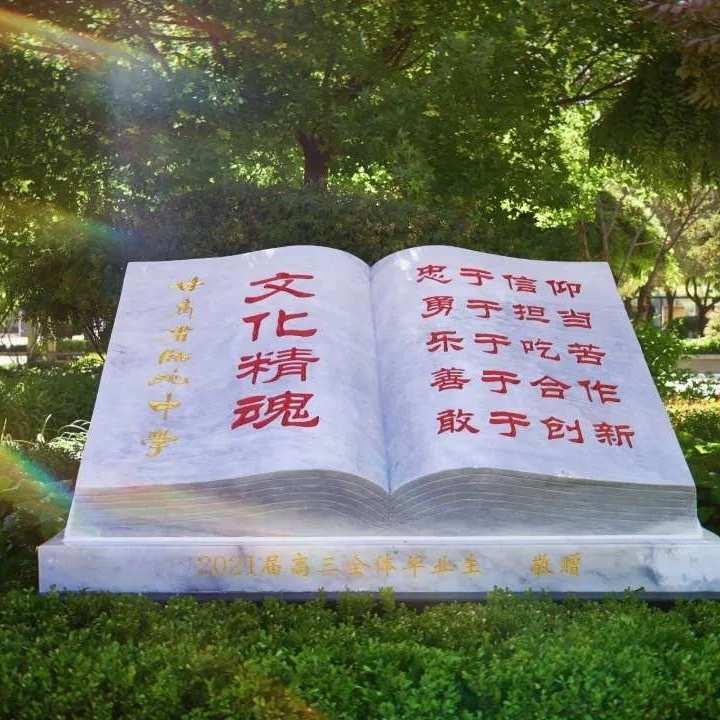 文化精魂
甘肅省臨洮中學
忠于信仰
勇于担当
乐于吃苦
善于合作
敢于创新
2021届高三全体毕业生 敬赠